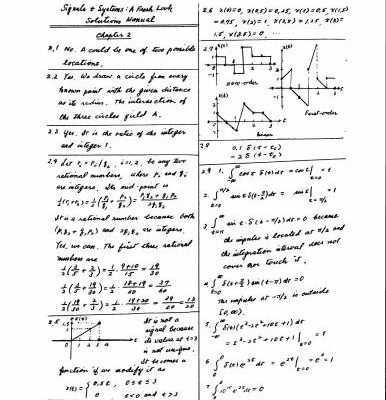 Signals & Systems: A Fresh Look
Solutions Manual
Chapter 2
2.1 No. A could be one of two possible
locations.
2.2 Yes. We draw a circle from every
known point with the given distance
as its radius. The intersection of
the three circles yield A.
2.3 Yes. It is the ratio of the integer
and integer 1.
2.4 Let r_i = p_i/q_i, i=1,2, be any two
rational numbers, where p_i and q_i
are integers. Its mid-point is
1/2 (r_1+r_2) = 1/2 (p_1/q_1 + p_2/q_2) = (p_1q_2 + q_1p_2)/(2q_1q_2)
It is a rational number because both
(p_1q_2 + q_1p_2) and 2q_1q_2 are integers.
Yes, we can. The first three rational
numbers are
2.5
x(t)
It is not a
signal because
its value at t=3
is not unique.
It becomes a
function if we modify it as
x(t) = { 0.5t, 0≤t≤3
0 t<0 and t>3
2.6 x(0)=0, x(0.5)=0.25, x(1)=0.5, x(1.5)
=0.75, x(2)=1, x(2.5)=1.25, x(3)=
1.5, x(3.5)=0
2.7
x(t)
zero-order
First-order
x(t)
linear
2.8
0.1 δ(t-t_0)
-2 δ(t-t_0)
2.9 1. ∫ cos t δ(t) dt = cos t | t=0 = 1
2. ∫ sin t δ(t-π/2) dt = sin t | t=π/2 = 1
3. ∫ sin t δ(t-π/2) dt = 0 because
the impulse is located at π/2 and
the integration interval does not
cover nor touch it.
4. ∫ δ(t+π/2) sin(t-π) dt = 0
The impulse at -π/2 is outside
[0,∞).
5. ∫ δ(t)(t³-2t²+10t+1) dt
= t³-2t²+10t+1 | t=0 = 1
6. ∫ δ(t) e^{2t} dt = e^{2t} | t=0 = e^0 = 1